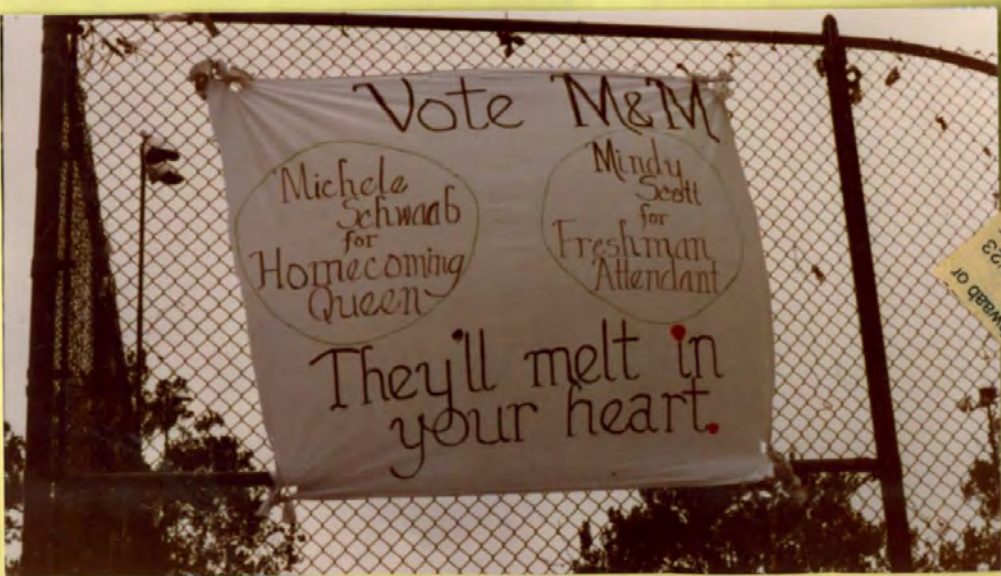 Vote M&M
Michele
Schwaab
for
Homecoming
Queen
Mindy
Scott
for
Freshman
Attendant
They'll melt in
your heart.
waab or
23